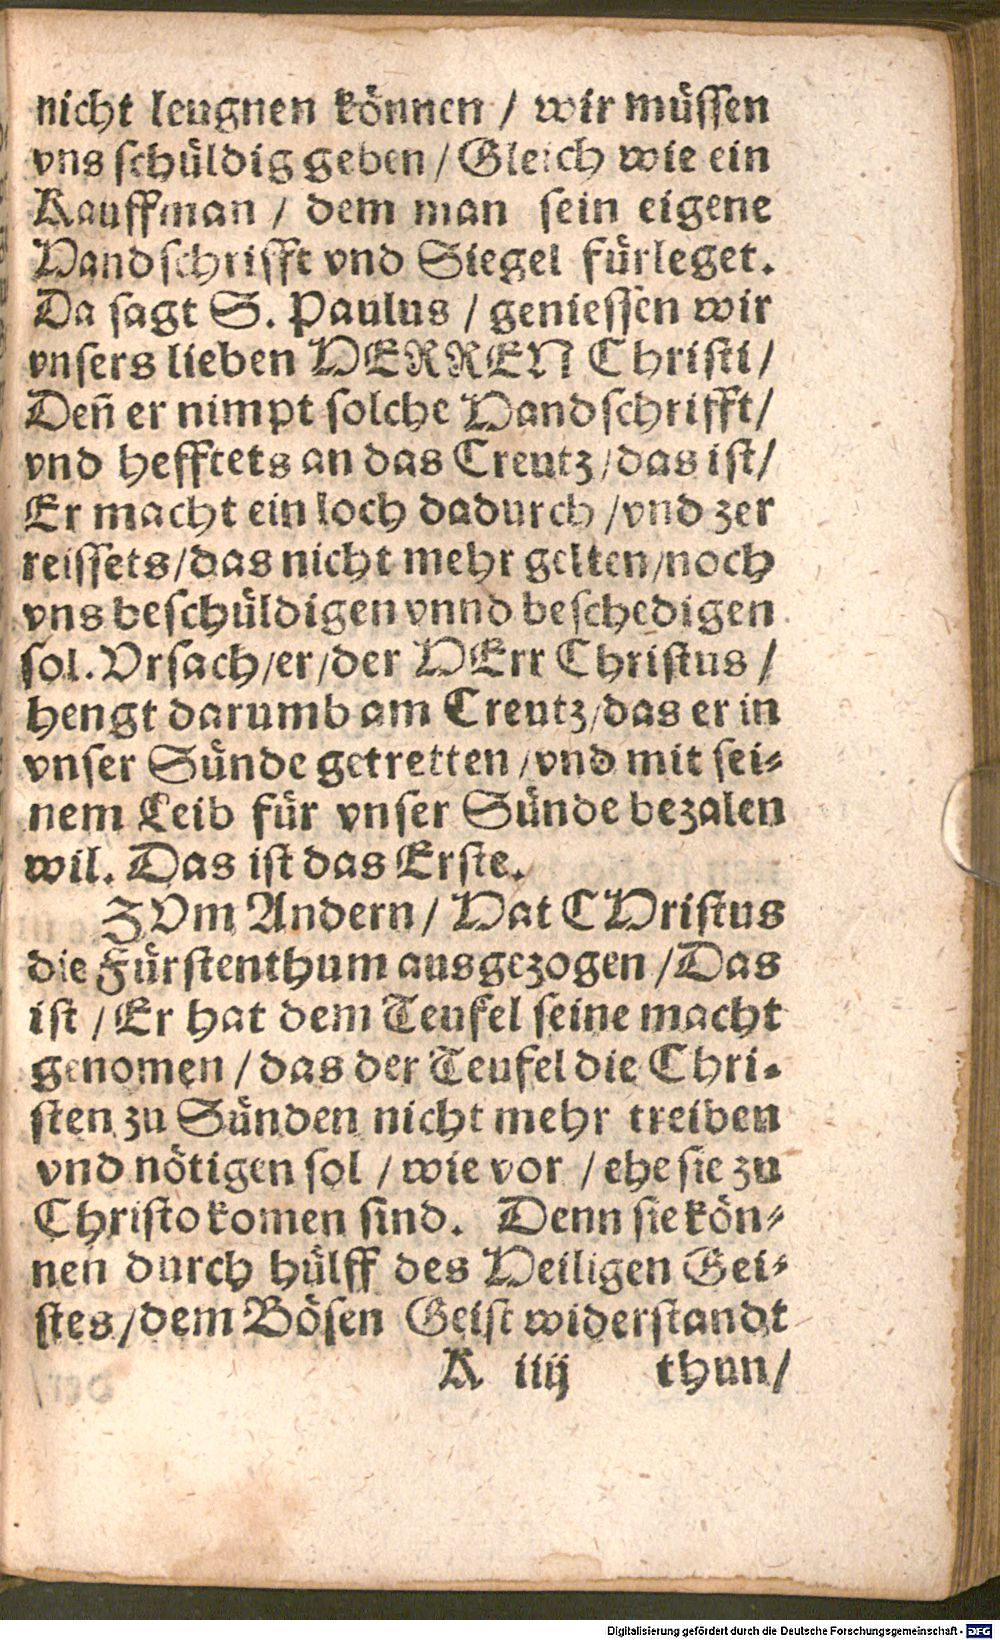 nicht leugnen können / wir müssen
vns schüldig geben / Gleich wie ein
Kauffman / dem man sein eigene
Handschrifft vnd Siegel fürleget.
Da sagt S. Paulus / geniessen wir
vnsers lieben HERREN Christi /
Deñ er nimpt solche Handschrifft /
vnd hefftets an das Creutz / das ist /
Er macht ein loch dadurch / vnd zer
reissets / das nicht mehr gelten / noch
vns beschüldigen vnnd beschedigen
sol. Vrsach / er / der HErr Christus /
hengt darumb am Creutz / das er in
vnser Sünde getretten / vnd mit sei-
nem Leib für vnser Sünde bezalen
wil. Das ist das Erste.
ZVm Andern / Hat CHristus
die Fürstenthum ausgezogen / Das
ist / Er hat dem Teufel seine macht
genomen / das der Teufel die Chri-
sten zu Sünden nicht mehr treiben
vnd nötigen sol / wie vor / ehe sie zu
Christo komen sind. Denn sie kön-
nen durch hülff des Heiligen Gei-
stes / dem Bösen Geist widerstandt
K iiij thun /
Digitalisierung gefördert durch die Deutsche Forschungsgemeinschaft - DFG